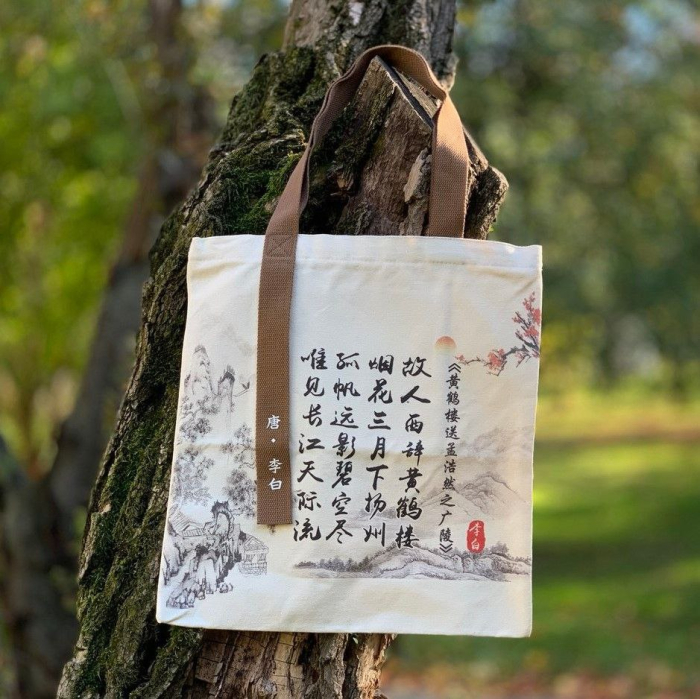 《黄鹤楼送孟浩然之广陵》
李白
故人西辞黄鹤楼
烟花三月下扬州
孤帆远影碧空尽
唯见长江天际流
唐·李白